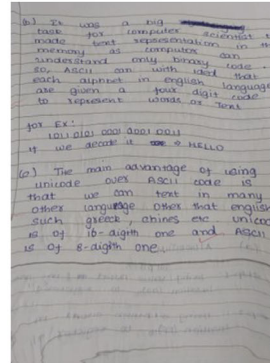 (b) It was a big
task for computer scientist t
made text representation in th
memory as computer can
understand only binary code.
so, ASCII can with idea that
each alphbet in english language
are given a four digit code
to represent words or Text
for Ex:
1011 0101 0001 0001 0011
If we decode it HELLO
(c) The main advantage of using
unicode over ASCII code is
that we can text in many
other language other that english
such greek, chines etc. Unicod
is of 16-digith one and ASCII
is of 8-digith one